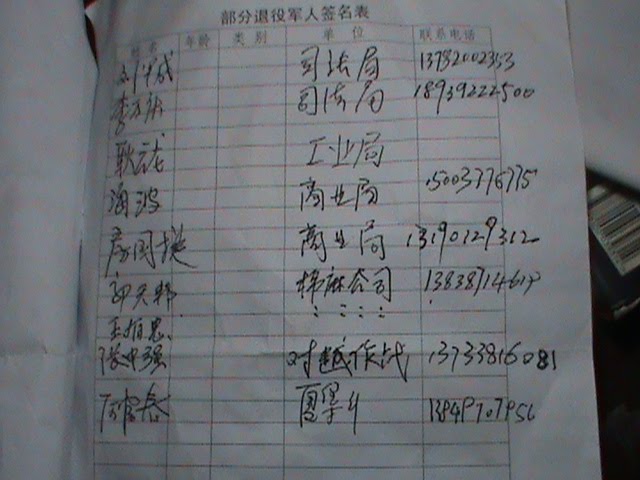 部分退役军人签名表
姓名 年龄 类别 单位 联系电话
司法局 13782002353
李万 司法局 18939222500
耿 工业局
海波 商业局 15003776775
房国挺 商业局 13190129312
郭天 棉麻公司 1383871461
王相忠 : : : :
张中强 对越作战 13733816081
13849707956